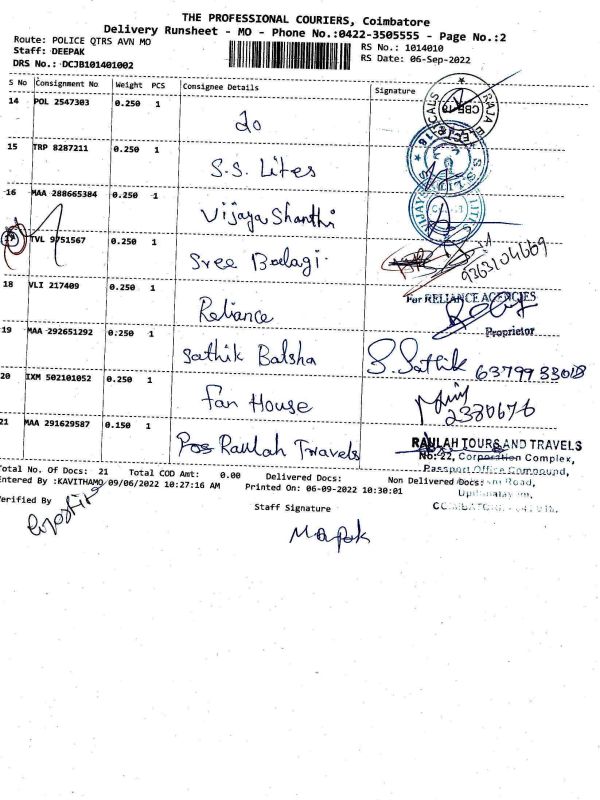 THE PROFESSIONAL COURIERS, Coimbatore
Delivery Runsheet - MO - Phone No.:0422-3505555 - Page No.:2
Route: POLICE QTRS AVN MO
RS No.: 1014010
Staff: DEEPAK
RS Date: 06-Sep-2022
DRS No.: DCJB101401002
S No Consignment No Weight PCS Consignee Details Signature
14 POL 2547303 0.250 1
RAJA
CBE-18
15 TRP 8287211 0.250 1
S.S. Lites
16 MAA 288665384 0.250 1
Vijaya Shanthi
17 TVL 9751567 0.250 1
Sree Balagi
9363104669
18 VLI 217409 0.250 1
For RELIANCE AGENCIES
Reliance
Proprietor
19 MAA 292651292 0.250 1
Sathik Batsha
S. Sathik 6379933018
20 IXM 502101052 0.250 1
Fan House
2380676
21 MAA 291629587 0.150 1
Raulah Travels
RAULAH TOURS AND TRAVELS
No:22, Corporation Complex,
Passport Office Compound,
Road,
Total No. Of Docs: 21 Total COD Amt: 0.00 Delivered Docs: Non Delivered Docs:
Entered By :KAVITHAMO/09/06/2022 10:27:16 AM Printed On: 06-09-2022 10:30:01
Verified By
Staff Signature